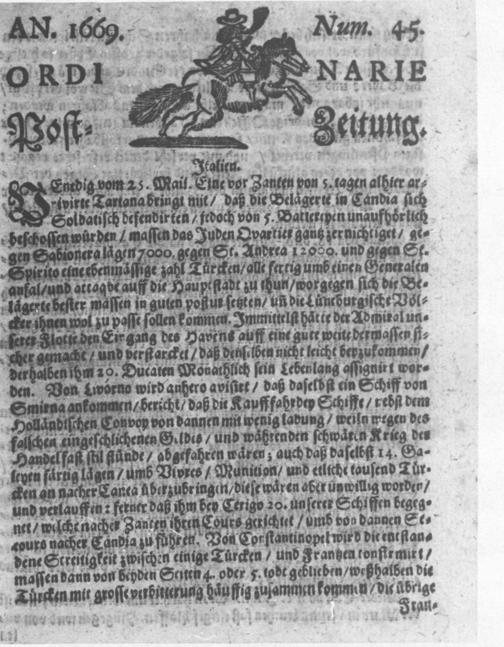 AN. 1669. Num. 45.
ORDINARIE
Post-Zeitung.
Italien.
VEnedig vom 25. Maii. Eine vor Zanten von 5. tagen alhier ar-
rivirte Tartana bringt mit / daß die Belägerte in Candia sich
Soldatisch defendirten / jedoch von 5. Battereyen unaufhörlich
beschossen würden / massen das Juden Quartier gantz zernichtiget / ge-
gen Sabionera lägen 7000. gegen St. Andrea 12000. und gegen St.
Spirito eine ebenmässige zahl Türcken / alle fertig umb einen Generalen
anfal / und attaqve auff die Hauptstadt zu thun / worgegen sich die Be-
lägerte bester massen in guten postur setzten / uñ die Lüneburgische Völ-
cker ihnen wol zu passe sollen kommen. Immittelst hätte der Admiral un-
serer Flotte den Eingang des Havens auff eine gute weite dermassen si-
cher gemacht / und verstarcket / daß denselben nicht leicht beyzukommen /
derhalben ihm 20. Ducaten Monathlich sein Lebenlang assignirt wor-
den. Von Livorno wird anhero avisirt / daß daselbst ein Schiff von
Smirna ankommen / bericht / daß die Kauffardey Schiffe / nebst dem
Holländischen Convoy von dannen mit wenig ladung / weiln wegen des
falschen eingeschlichenen Geldes / und währenden schwären Krieg der
Handel fast stil stünde / abgefahren wären; auch daß daselbst 14. Ga-
leyen färtig lägen / umb Vivres / Munition / und etliche tausend Tür-
cken an nacher Canea überzubringen / diese wären aber unwillig worden /
und verlauffen: ferner daß ihm bey Cerigo 20. unserer Schiffen begeg-
net / welche nacher Zanten ihren Cours gerichtet / umb von dannen Se-
cours nacher Candia zu führen. Von Constantinopel wird die entstan-
dene Streitigkeit zwischen einige Türcken / und Frantzen confirmirt /
massen dann von beyden Seiten 4. oder 5. todt geblieben / weßhalben die
Türcken mit grosse verbitterung häuffig zusammen kommen / die übrige
Fran-